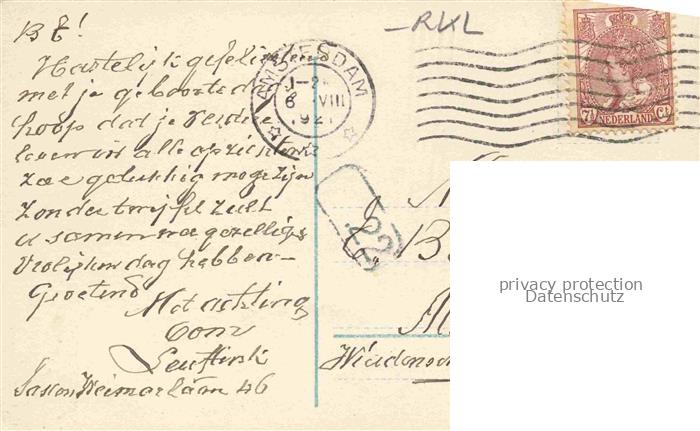 B E!
Hartelijk gefeliciteerd
met je geboortedag
hoop dat je verdere
leven in alle opzichten
zoo gelukkig moge zijn
zonder twijfel zult
u samen nog gezellige
vrolijke dag hebben-
Groetend
Met achting
Saxen Weimarlaan 46
-RKL
AMSTERDAM
6 VIII
192
7½ Ct
NEDERLAND
22
privacy protection
Datenschutz